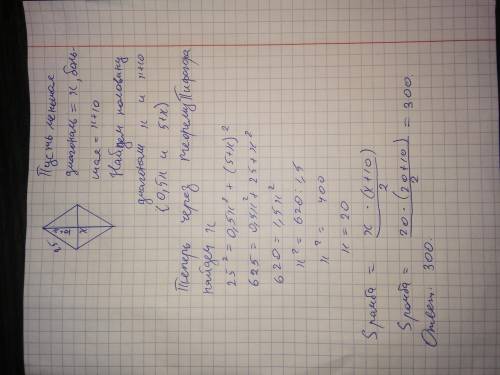 Пусть меньшая
диагональ = х, боль-
шая = х+10
Найдем половину
диагонали х и х+10
(0,5х и 5+х)
Теперь через теорему Пифагора
найдем х
25² = 0,5х² + (5+х)²
625 = 0,5х² + 25 + х²
620 = 1,5х²
х² = 620 : 1,5
х² = 400
х = 20
Sромба = х · (х+10) / 2
Sромба = 20 · (20+10) / 2 = 300.
Ответ: 300.